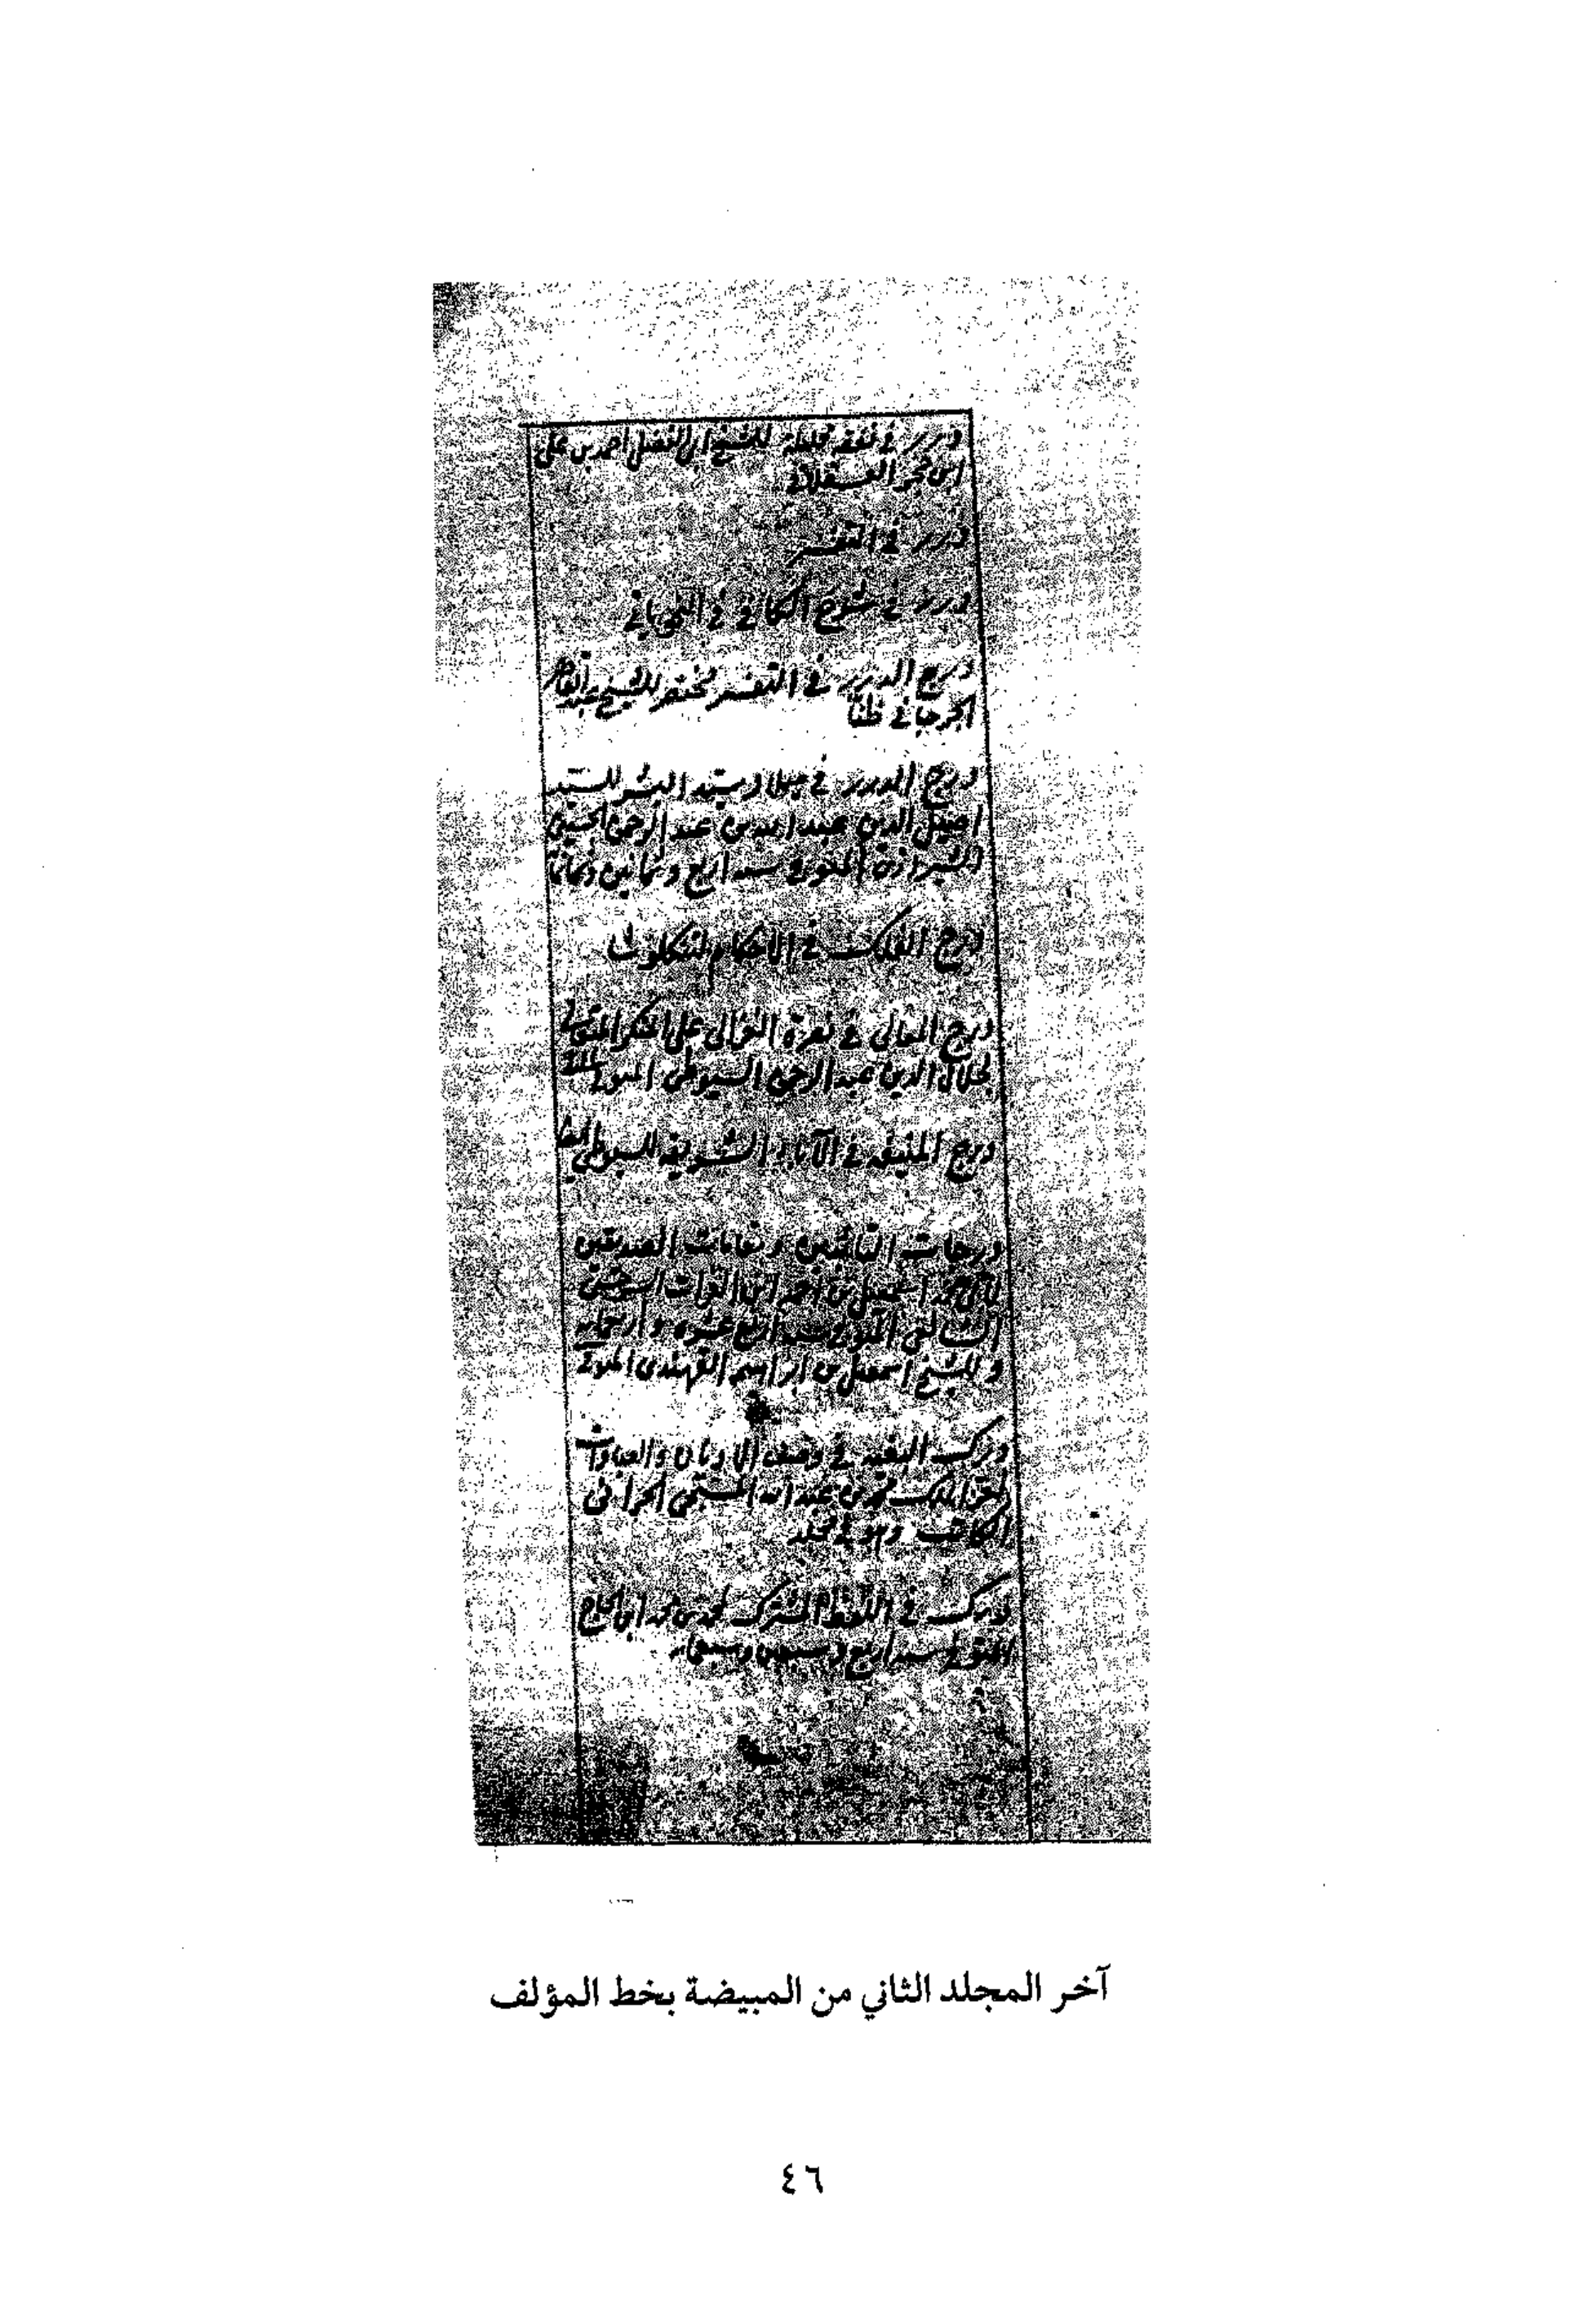 درر في
ابن حجر العسقلاني
درر في التفسير
درر في شرح الكافي في
درج الدرر في التفسير مختصر للشيخ عبد القاهر
الجرجاني ظنا
درج الدرر في ميلاد سيد البشر للسيد
اصيل الدين عبد الله بن عبد الرحمن الحسيني
الشيرازي المتوفى سنة اربع وثمانين وثمانمائة
درج الفلك في الاحكام لتنكلوشا
درج المعالي في نصرة الغزالي على المنكر المتغالي
لجلال الدين عبد الرحمن السيوطي المتوفى
درج المنيفة في الآباء الشريفة للسيوطي
درجات التائبين ومقامات الصديقين
لابي محمد اسمعيل بن احمد ابن الفرات السرخسي
المتوفى سنة اربع عشرة واربعمائة
وللشيخ اسمعيل بن ابراهيم القهندزي المتوفى
درك البغية في وصف الاديان والعبادات
لعز الملك محمد بن عبد الله المسبحي الحراني
الكاتب وهو في مجلد
درك في اللفظ المشترك لمحمد بن محمد ابن الحاج
المتوفى سنة اربع وسبعين وسبعمائة
آخر المجلد الثاني من المبيضة بخط المؤلف
٤٦